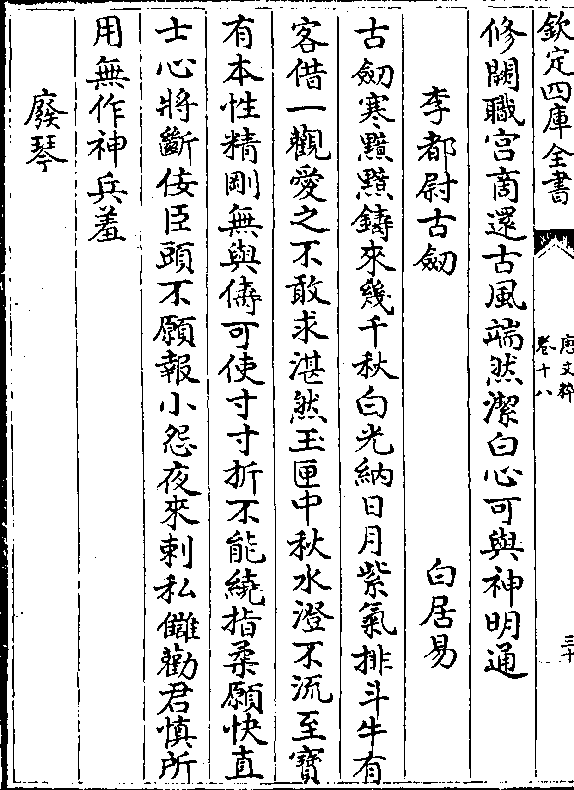 欽定四庫全書
唐文粹
卷十八
三十
修闕職宫商還古風端然潔白心可與神明通
李都尉古劒 白居易
古劒寒黯黯鑄來幾千秋白光納日月紫氣排斗牛有
客借一觀愛之不敢求湛然玉匣中秋水澄不流至寳
有本性精剛無與儔可使寸寸折不能繞指柔願快直
士心將斷佞臣頭不願報小怨夜來刺私讎勸君慎所
用無作神兵羞
廢琴